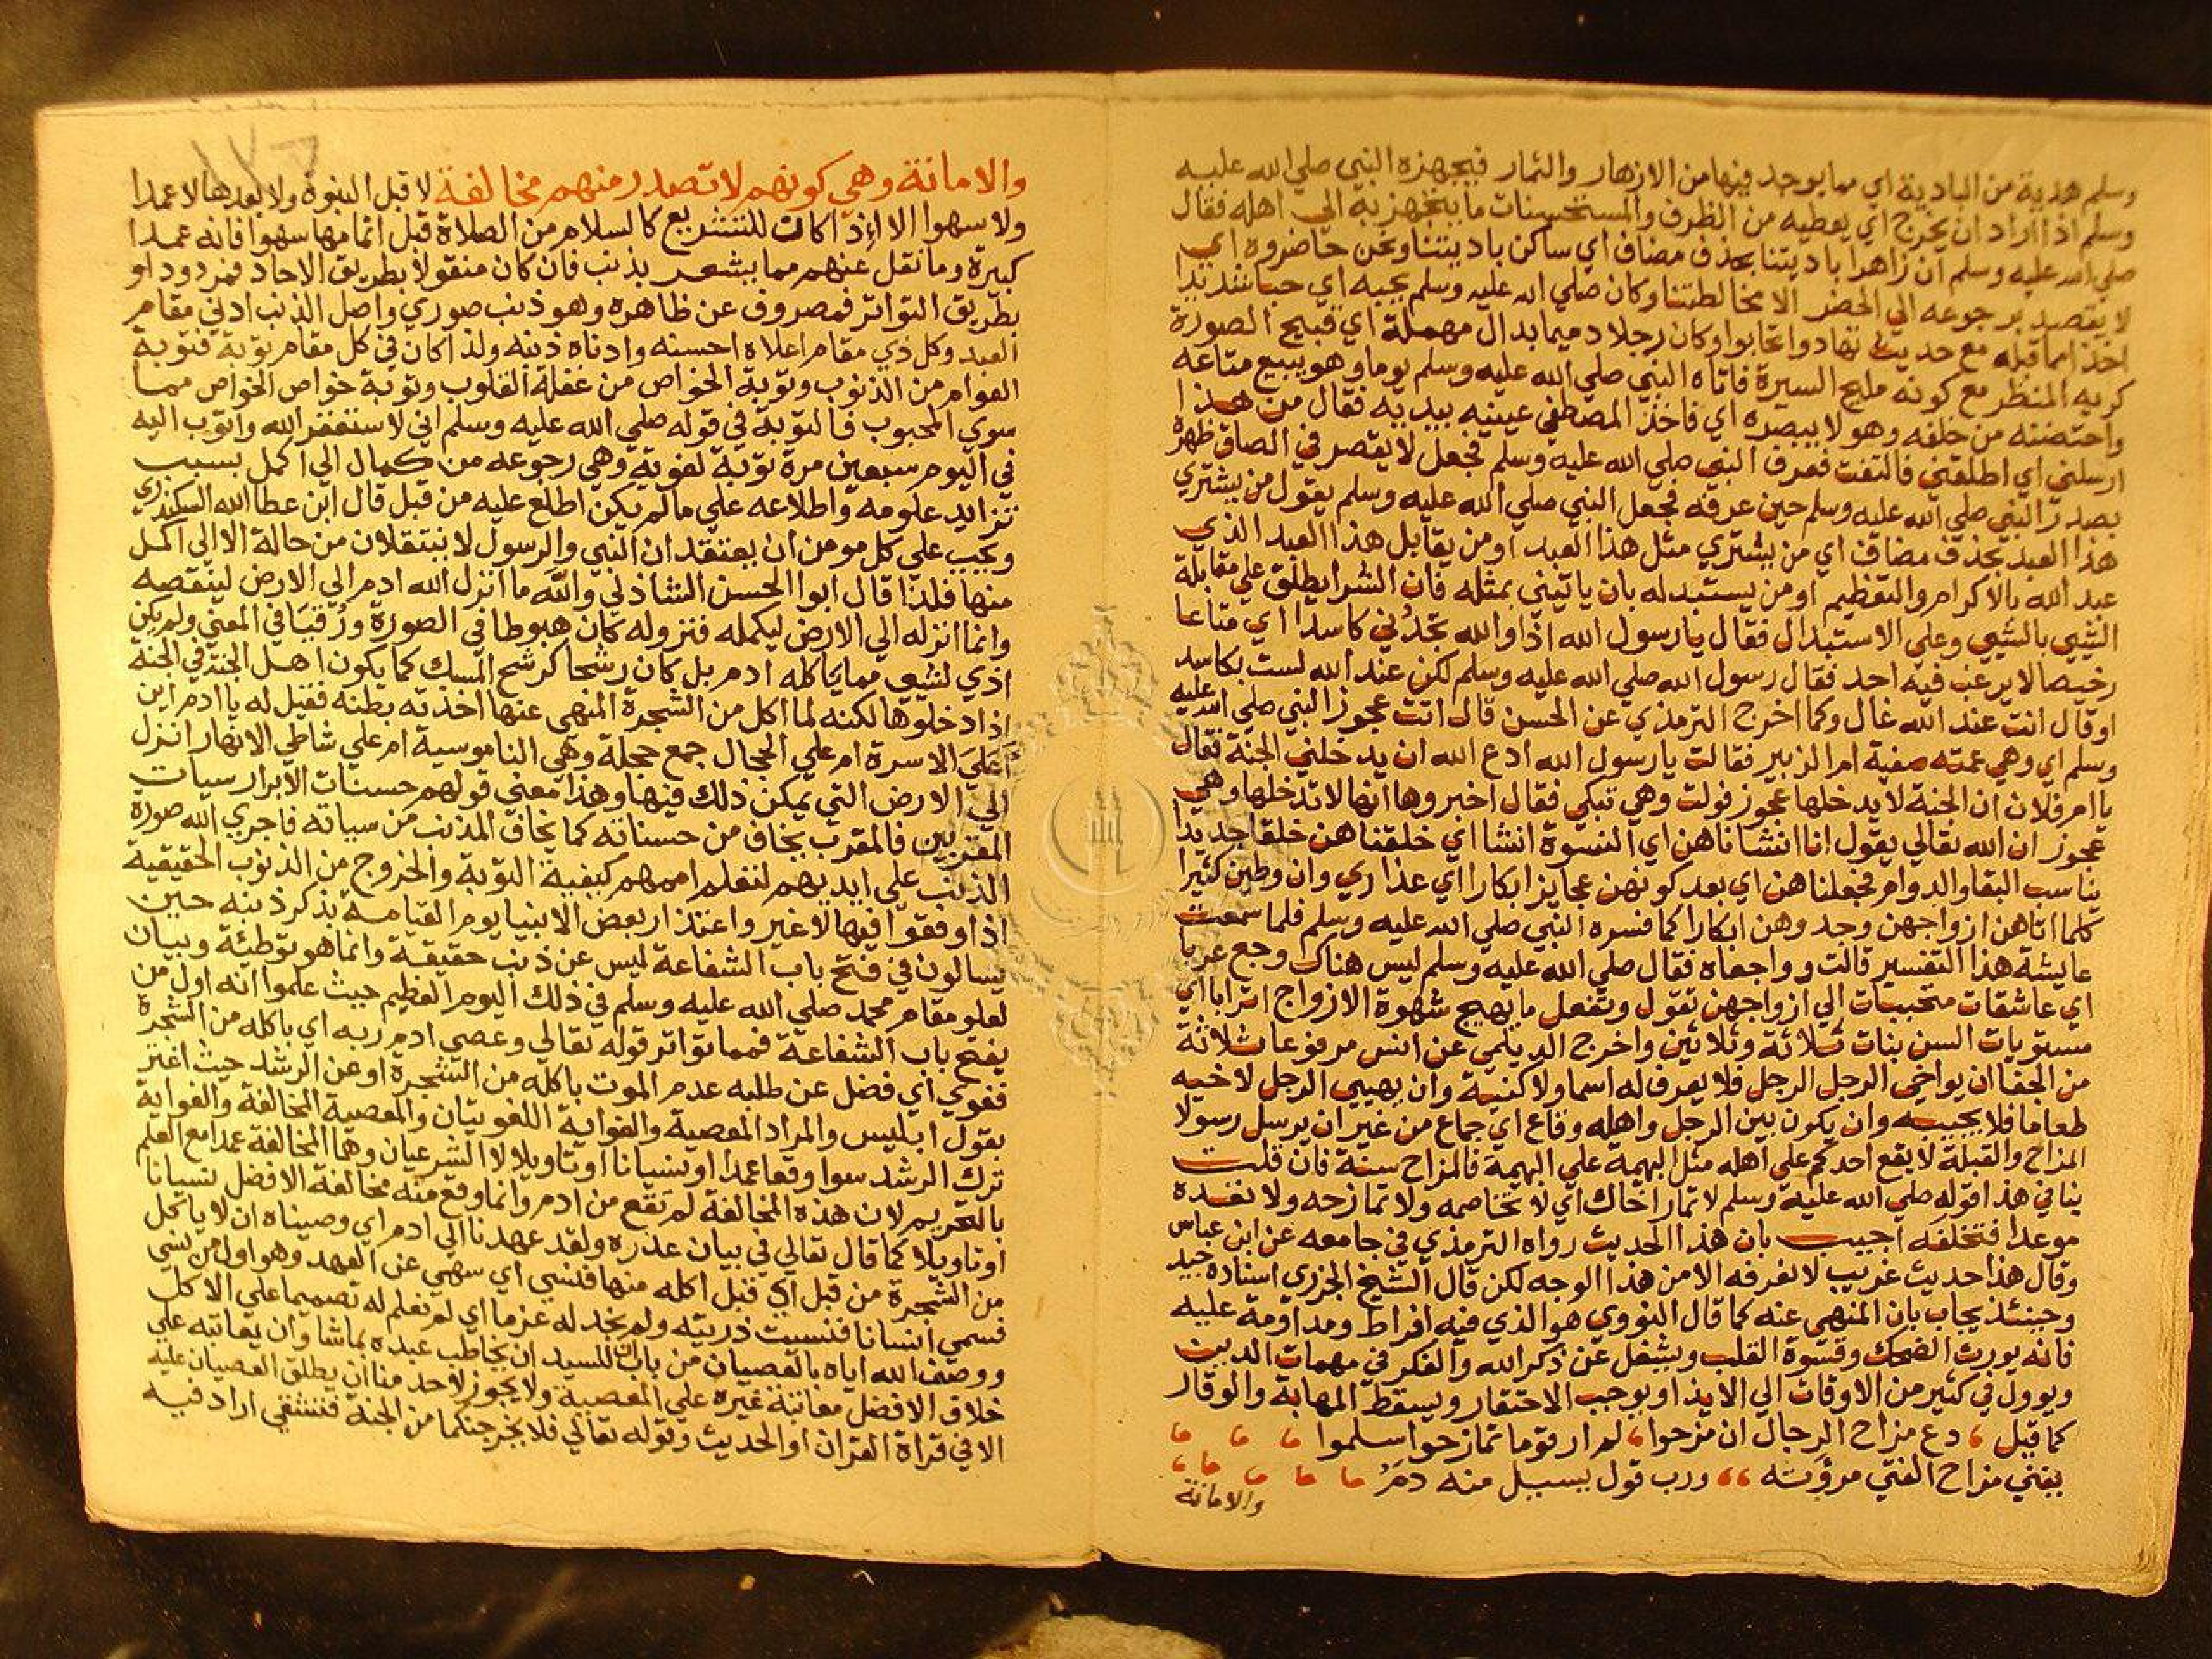 وسلم هدية من البادية اي مما يوجد فيها من الازهار والثمار فيجهزه النبي صلي الله عليه
وسلم اذا اراد ان يخرج اي يعطيه من الظرف والمستحسنات ما يتجهز به الي اهله فقال
صلي الله عليه وسلم ان زاهرا باديتنا بحذف مضاف اي ساكن باديتنا ونحن حاضروه اي
لا يقصد برجوعه الي الحضر الا مخالطتنا وكان صلي الله عليه وسلم يحبه اي حبا شديدا
اخذا مما قبله مع حديث تهادوا تحابوا وكان رجلا دميما بدال مهملة اي قبيح الصورة
كريه المنظر مع كونه مليح السيرة فاتاه النبي صلي الله عليه وسلم يوما وهو يبيع متاعه
واحتضنه من خلفه وهو لا يبصره اي فاخذ المصطفي عينيه بيديه فقال من هذا
ارسلني اي اطلقني فالتفت فعرف النبي صلي الله عليه وسلم فجعل لا يقصر في الصاق ظهره
بصدر النبي صلي الله عليه وسلم حين عرفه فجعل النبي صلي الله عليه وسلم يقول من يشتري
هذا العبد بحذف مضاف اي من يشتري مثل هذا العبد او من يقابل هذا العبد الذي
عبد الله بالاكرام والتعظيم او من يستبدله بان ياتيني بمثله فان الشرا يطلق علي مقابلة
الشي بالشي وعلي الاستبدال فقال يا رسول الله اذا والله تجدني كاسدا اي متاعا
رخيصا لا يرغب فيه احد فقال رسول الله صلي الله عليه وسلم لكن عند الله لست بكاسد
او قال انت عند الله غال وكما اخرج الترمذي عن الحسن قال اتت عجوز النبي صلي الله عليه
وسلم اي وهي عمته صفية ام الزبير فقالت يا رسول الله ادع الله ان يدخلني الجنة فقال
يا ام فلان ان الجنة لا يدخلها عجوز فولت وهي تبكي فقال اخبروها انها لا تدخلها وهي
عجوز ان الله تعالي يقول انا انشاناهن اي النسوة انشا اي خلقناهن خلقا جديدا
يناسب البقا والدوام فجعلناهن اي بعد كونهن عجايز ابكارا اي عذاري وان وطين كثيرا
كلما اتاهن ازواجهن وجدوهن ابكارا كما فسره النبي صلي الله عليه وسلم فلما سمعت
عايشة هذا التفسير قالت وواجعاه فقال صلي الله عليه وسلم ليس هناك وجع عربا
اي عاشقات متحببات الي ازواجهن تقول وتفعل ما يهيج شهوة الازواج اترابا اي
مستويات السن بنات ثلاثة وثلاثين واخرج الديلمي عن انس مرفوعا ثلاثة
من الجفا ان يواخي الرجل الرجل فلا يعرف له اسما ولا كنية وان يهيي الرجل لاخيه
طعاما فلا يجيبه وان يكون بين الرجل واهله وقاع اي جماع من غير ان يرسل رسولا
المزاح والقبلة لا يقع احدكم علي اهله مثل البهيمة علي البهيمة فالمزاح سنة فان قلت
ينافي هذا قوله صلي الله عليه وسلم لا تمار اخاك اي لا تخاصمه ولا تمازحه ولا تعده
موعدا فتخلفه اجيب بان هذا الحديث رواه الترمذي في جامعه عن ابن عباس
وقال هذا حديث غريب لا نعرفه الا من هذا الوجه لكن قال الشيخ الجزري اسناده جيد
وحينئذ يجاب بان المنهي عنه كما قال النووي هو الذي فيه افراط ومداومة عليه
فانه يورث الضحك وقسوة القلب ويشغل عن ذكر الله والفكر في مهمات الدين
ويوول في كثير من الاوقات الي الايذا ويوجب الاحتقار ويسقط المهابة والوقار
كما قيل دع مزاح الرجال ان مزحوا لم ار قوما تمازحوا سلموا
يفني مزاح الفتي مروته ورب قول يسيل منه دم
والامانة
والامانة وهي كونهم لا تصدر منهم مخالفة لا قبل النبوة ولا بعدها لا عمدا
ولا سهوا الا اذا كانت للتشريع كالسلام من الصلاة قبل اتمامها سهوا فانه عمدا
كبيرة وما نقل عنهم مما يشعر بذنب فان كان منقولا بطريق الاحاد فمردود او
بطريق التواتر فمصروف عن ظاهره وهو ذنب صوري واصل الذنب ادني مقام
العبد وكل ذي مقام اعلاه احسنه وادناه ذنبه ولذا كان في كل مقام توبة فتوبة
العوام من الذنوب وتوبة الخواص من غفلة القلوب وتوبة خواص الخواص مما
سوي المحبوب فالتوبة في قوله صلي الله عليه وسلم اني لاستغفر الله واتوب اليه
في اليوم سبعين مرة توبة لغوية وهي رجوعه من كمال الي اكمل بسبب
تزايد علومه واطلاعه علي ما لم يكن اطلع عليه من قبل قال ابن عطا الله السكندري
ويجب علي كل مومن ان يعتقد ان النبي والرسول لا ينتقلان من حالة الا الي اكمل
منها فلذا قال ابوا الحسن الشاذلي والله ما انزل الله ادم الي الارض لينقصه
وانما انزله الي الارض ليكمله فنزوله كان هبوطا في الصورة ورقيا في المعني ولم يكن
اذي لشي مما ياكله ادم بل كان رشحا كرشح المسك كما يكون اهل الجنة في الجنة
اذا دخلوها لكنه لما اكل من الشجرة المنهي عنها اخذته بطنه فقيل له يا ادم اين
اعلي الاسرة ام علي الحجال جمع حجلة وهي الناموسية ام علي شاطي الانهار انزل
الي الارض التي يمكن ذلك فيها وهذا معني قولهم حسنات الابرار سيات
المقربين فالمقرب يخاف من حسناته كما يخاف المذنب من سياته فاجري الله صورة
الذنب علي ايديهم لتعلم اممهم كيفية التوبة والخروج من الذنوب الحقيقية
اذا وقعوا فيها لا غير واعتذار بعض الانبيا يوم القيامة بذكر ذنبه حين
يسالون في فتح باب الشفاعة ليس عن ذنب حقيقة وانما هو توطئة وبيان
لعلو مقام محمد صلي الله عليه وسلم في ذلك اليوم العظيم حيث علموا انه اول من
يفتح باب الشفاعة فمما تواتر قوله تعالي وعصي ادم ربه اي باكله من الشجرة
فغوي اي فضل عن طلبه عدم الموت باكله من الشجرة او عن الرشد حيث اغتر
بقول ابليس والمراد المعصية والغواية اللغويتان والمعصية المخالفة والغواية
ترك الرشد سوا وقعا عمدا او نسيانا او تاويلا لا الشرعيان وهما المخالفة عمدا مع العلم
بالتحريم لان هذه المخالفة لم تقع من ادم وانما وقع منه مخالفة الافضل نسيانا
او تاويلا كما قال تعالي في بيان عذره ولقد عهدنا الي ادم اي وصيناه ان لا ياكل
من الشجرة من قبل اي قبل اكله منها فنسي اي سهي عن العهد وهو اول من نسي
فسمي انسانا فنسيت ذريته ولم نجد له عزما اي لم نعلم له تصميما علي الاكل
ووصف الله اياه بالعصيان من باب ان للسيد ان يخاطب عبده بما شا وان يعاتبه علي
خلاف الافضل معاتبة غيره علي المعصية ولا يجوز لاحد منا ان يطلق العصيان عليه
الا في قراة القران او الحديث وقوله تعالي فلا يخرجنكما من الجنة فتشقي اراد فيه